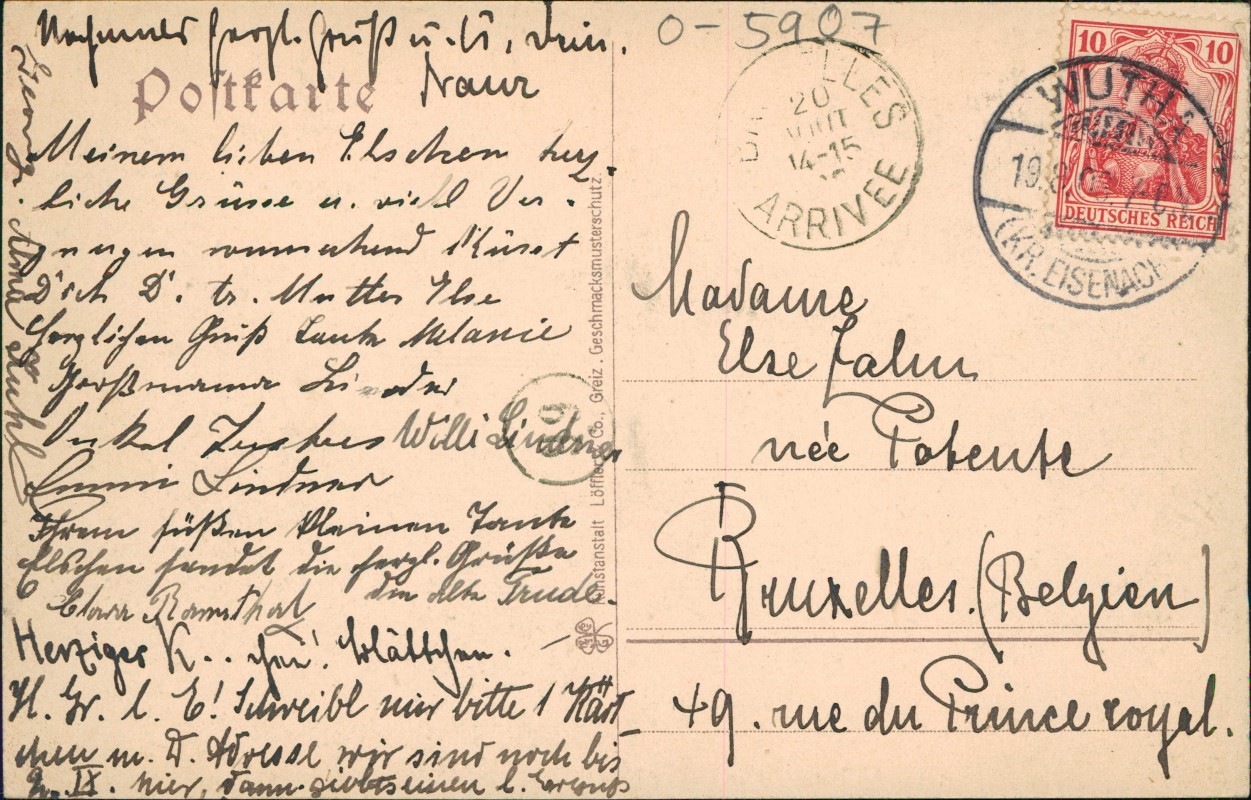 Nochmals herzl. Gruß u. K, dein.
Postkarte
O-5907
BRUXELLES
20
AOUT
14-15
ARRIVEE
10 10
DEUTSCHES REICH
WUTHA
19.8.
(KR. EISENACH)
Meinem lieben Elschen herz-
liche Grüsse u. viel Ver-
gnügen wünschend küsst
Dich D. tr. Mutter Else
Herzlichen Gruß Tante Melanie
Großmama Lindner
Onkel Willi Lindner
Emmi Lindner
Ihrem süßen kleinen Tante
Elschen sendet die herzl. Grüße
die alte Trude.
Clara
Herziges K...chen! Blättchen.
H. Gr. l. E! Schreibl mir bitte 1 Kärt
chen m. D. Adresse wir sind noch bis
IX. hier, dann
Kunstanstalt Löffler & Co., Greiz. Geschmacksmusterschutz.
Madame
Else Zahn
née Potente
Bruxelles. (Belgien)
49. rue du Prince royal.